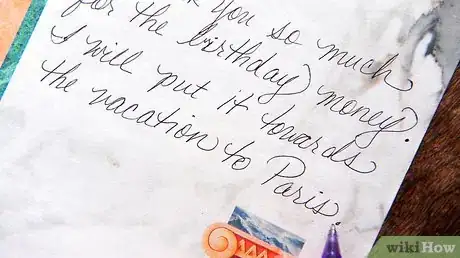 you so much
for the birthday money.
I will put it towards
the vacation to Paris.
wikiHow